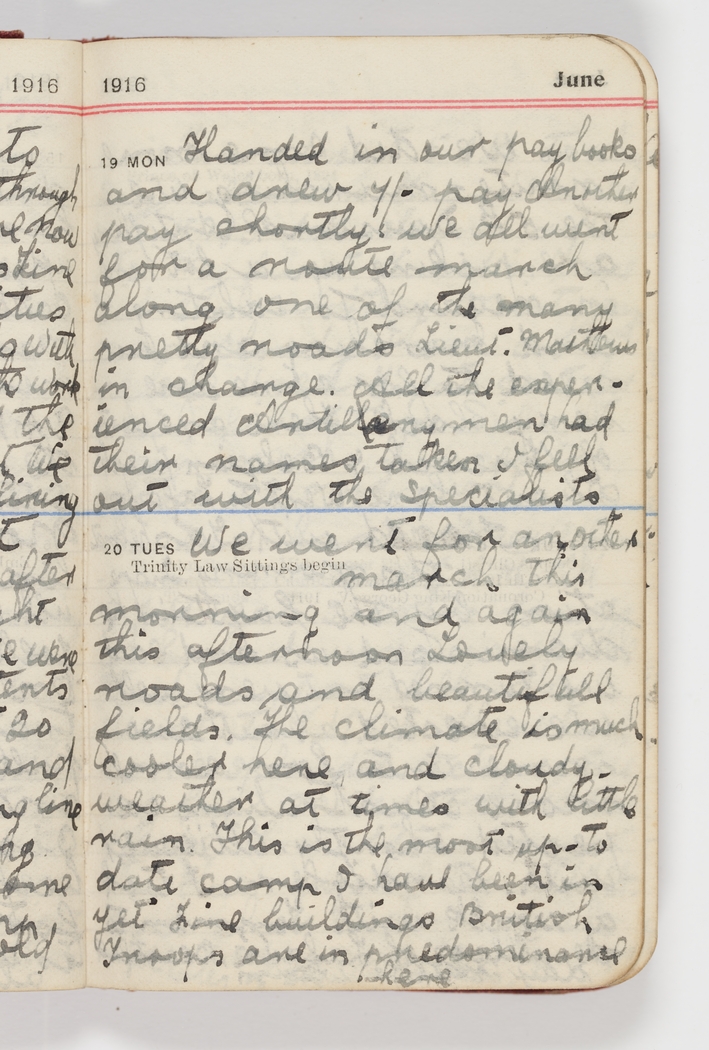 1916
to
through
now
Line
ities
with
work
the
t We
lining
t
after
ht
e were
ents
20
and
ng line
ng
ome
old
1916 June
19 MON Handed in our pay books
and drew 7/- pay Another
pay shortly. We all went
for a route march
along one of the many
pretty roads Lieut. Matthews
in charge. All the exper-
ienced Artillerymen had
their names taken I fell
out with the Specialists
20 TUES We went for another
Trinity Law Sittings begin
march this
morning and again
this afternoon Lovely
roads and beautifull
fields. The climate is much
cooler here and cloudy
weather at times with little
rain. This is the most up-to
date camp I have been in
yet Fine buildings British
Troops are in predominance
here